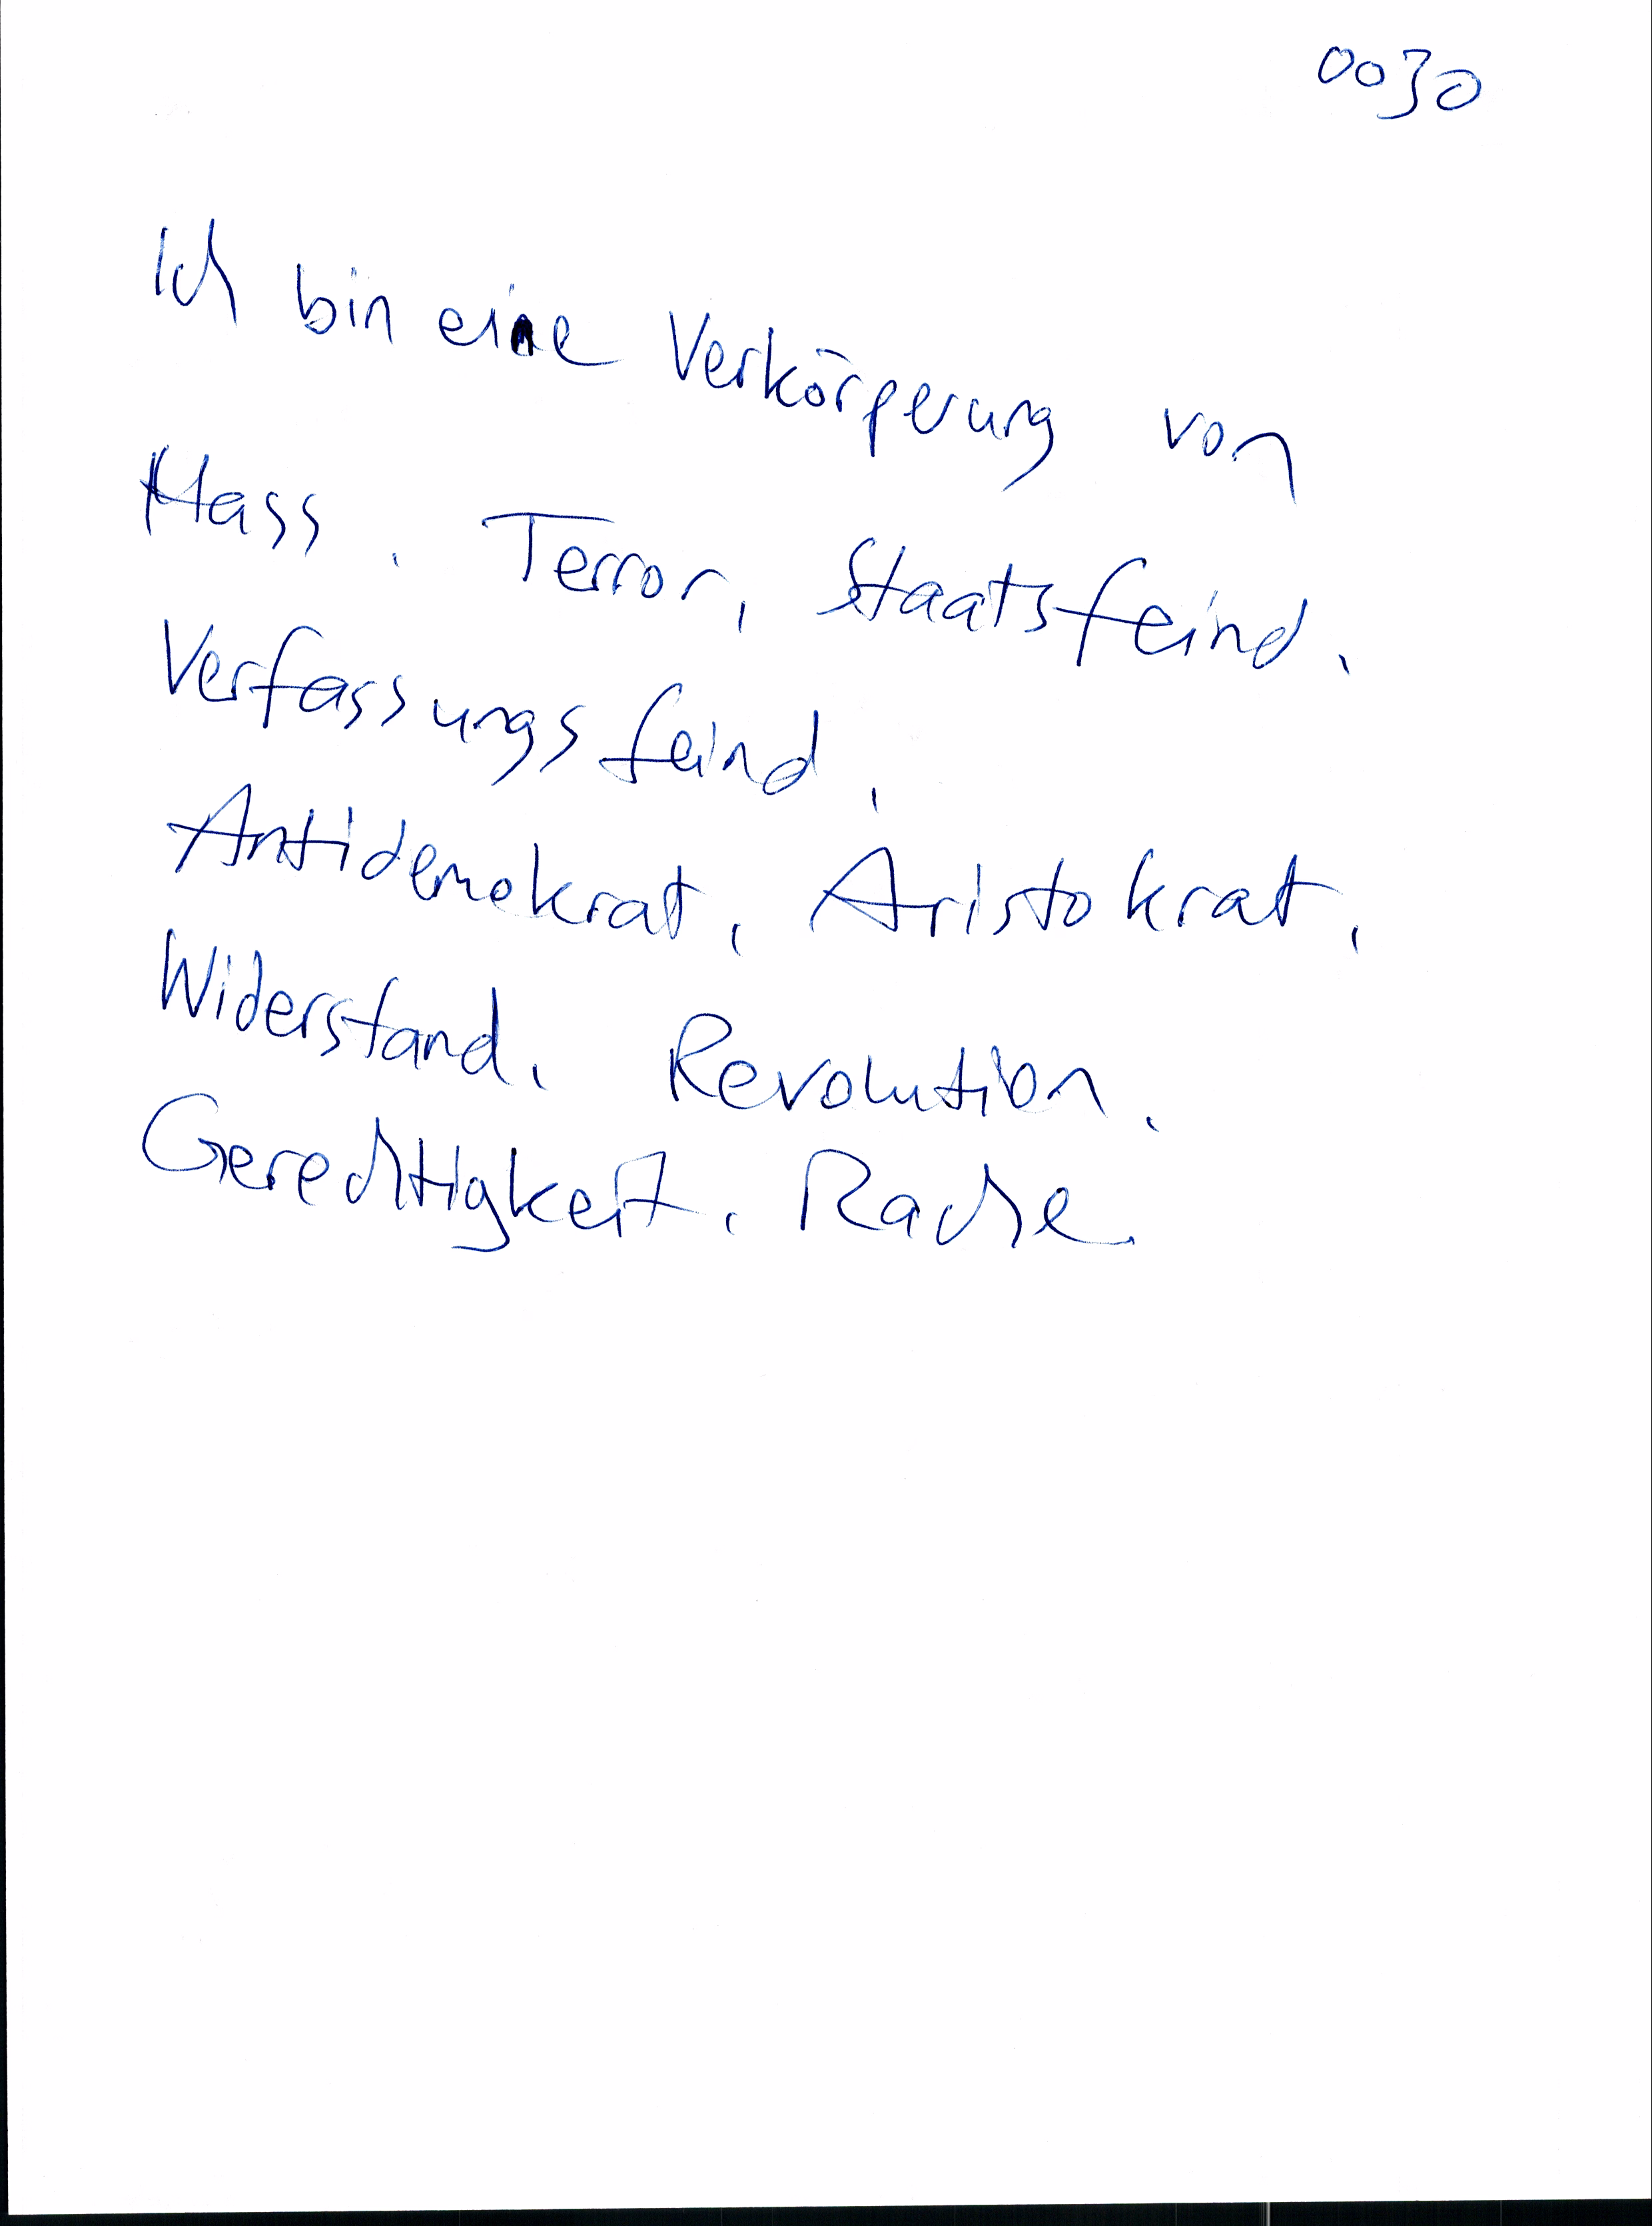 0030
Ich bin eine Verkörperung von
Hass, Terror, Staatsfeind,
Verfassungsfeind,
Antidemokrat, Aristokrat,
Widerstand, Revolution,
Gerechtigkeit, Rache